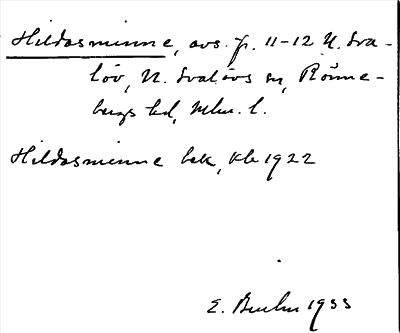 Hildasminne, avs. fr. 11-12 N. Sva-
löv, N. Svalövs sn, Rönne-
bergs hd, Mlm. l.
Hildasminne bek, Kb 1922
E. 1933